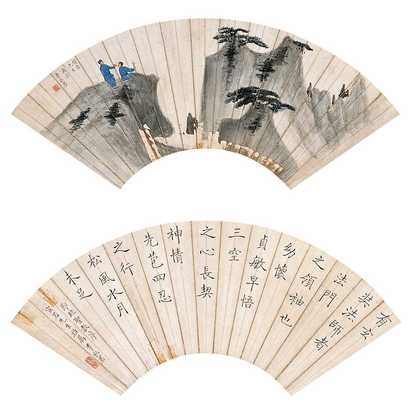 有玄
奘法師者
法門
之領袖也
幼懷
貞敏早悟
三空
之心長契
神情
先苞四忍
之行
松風水月
未足